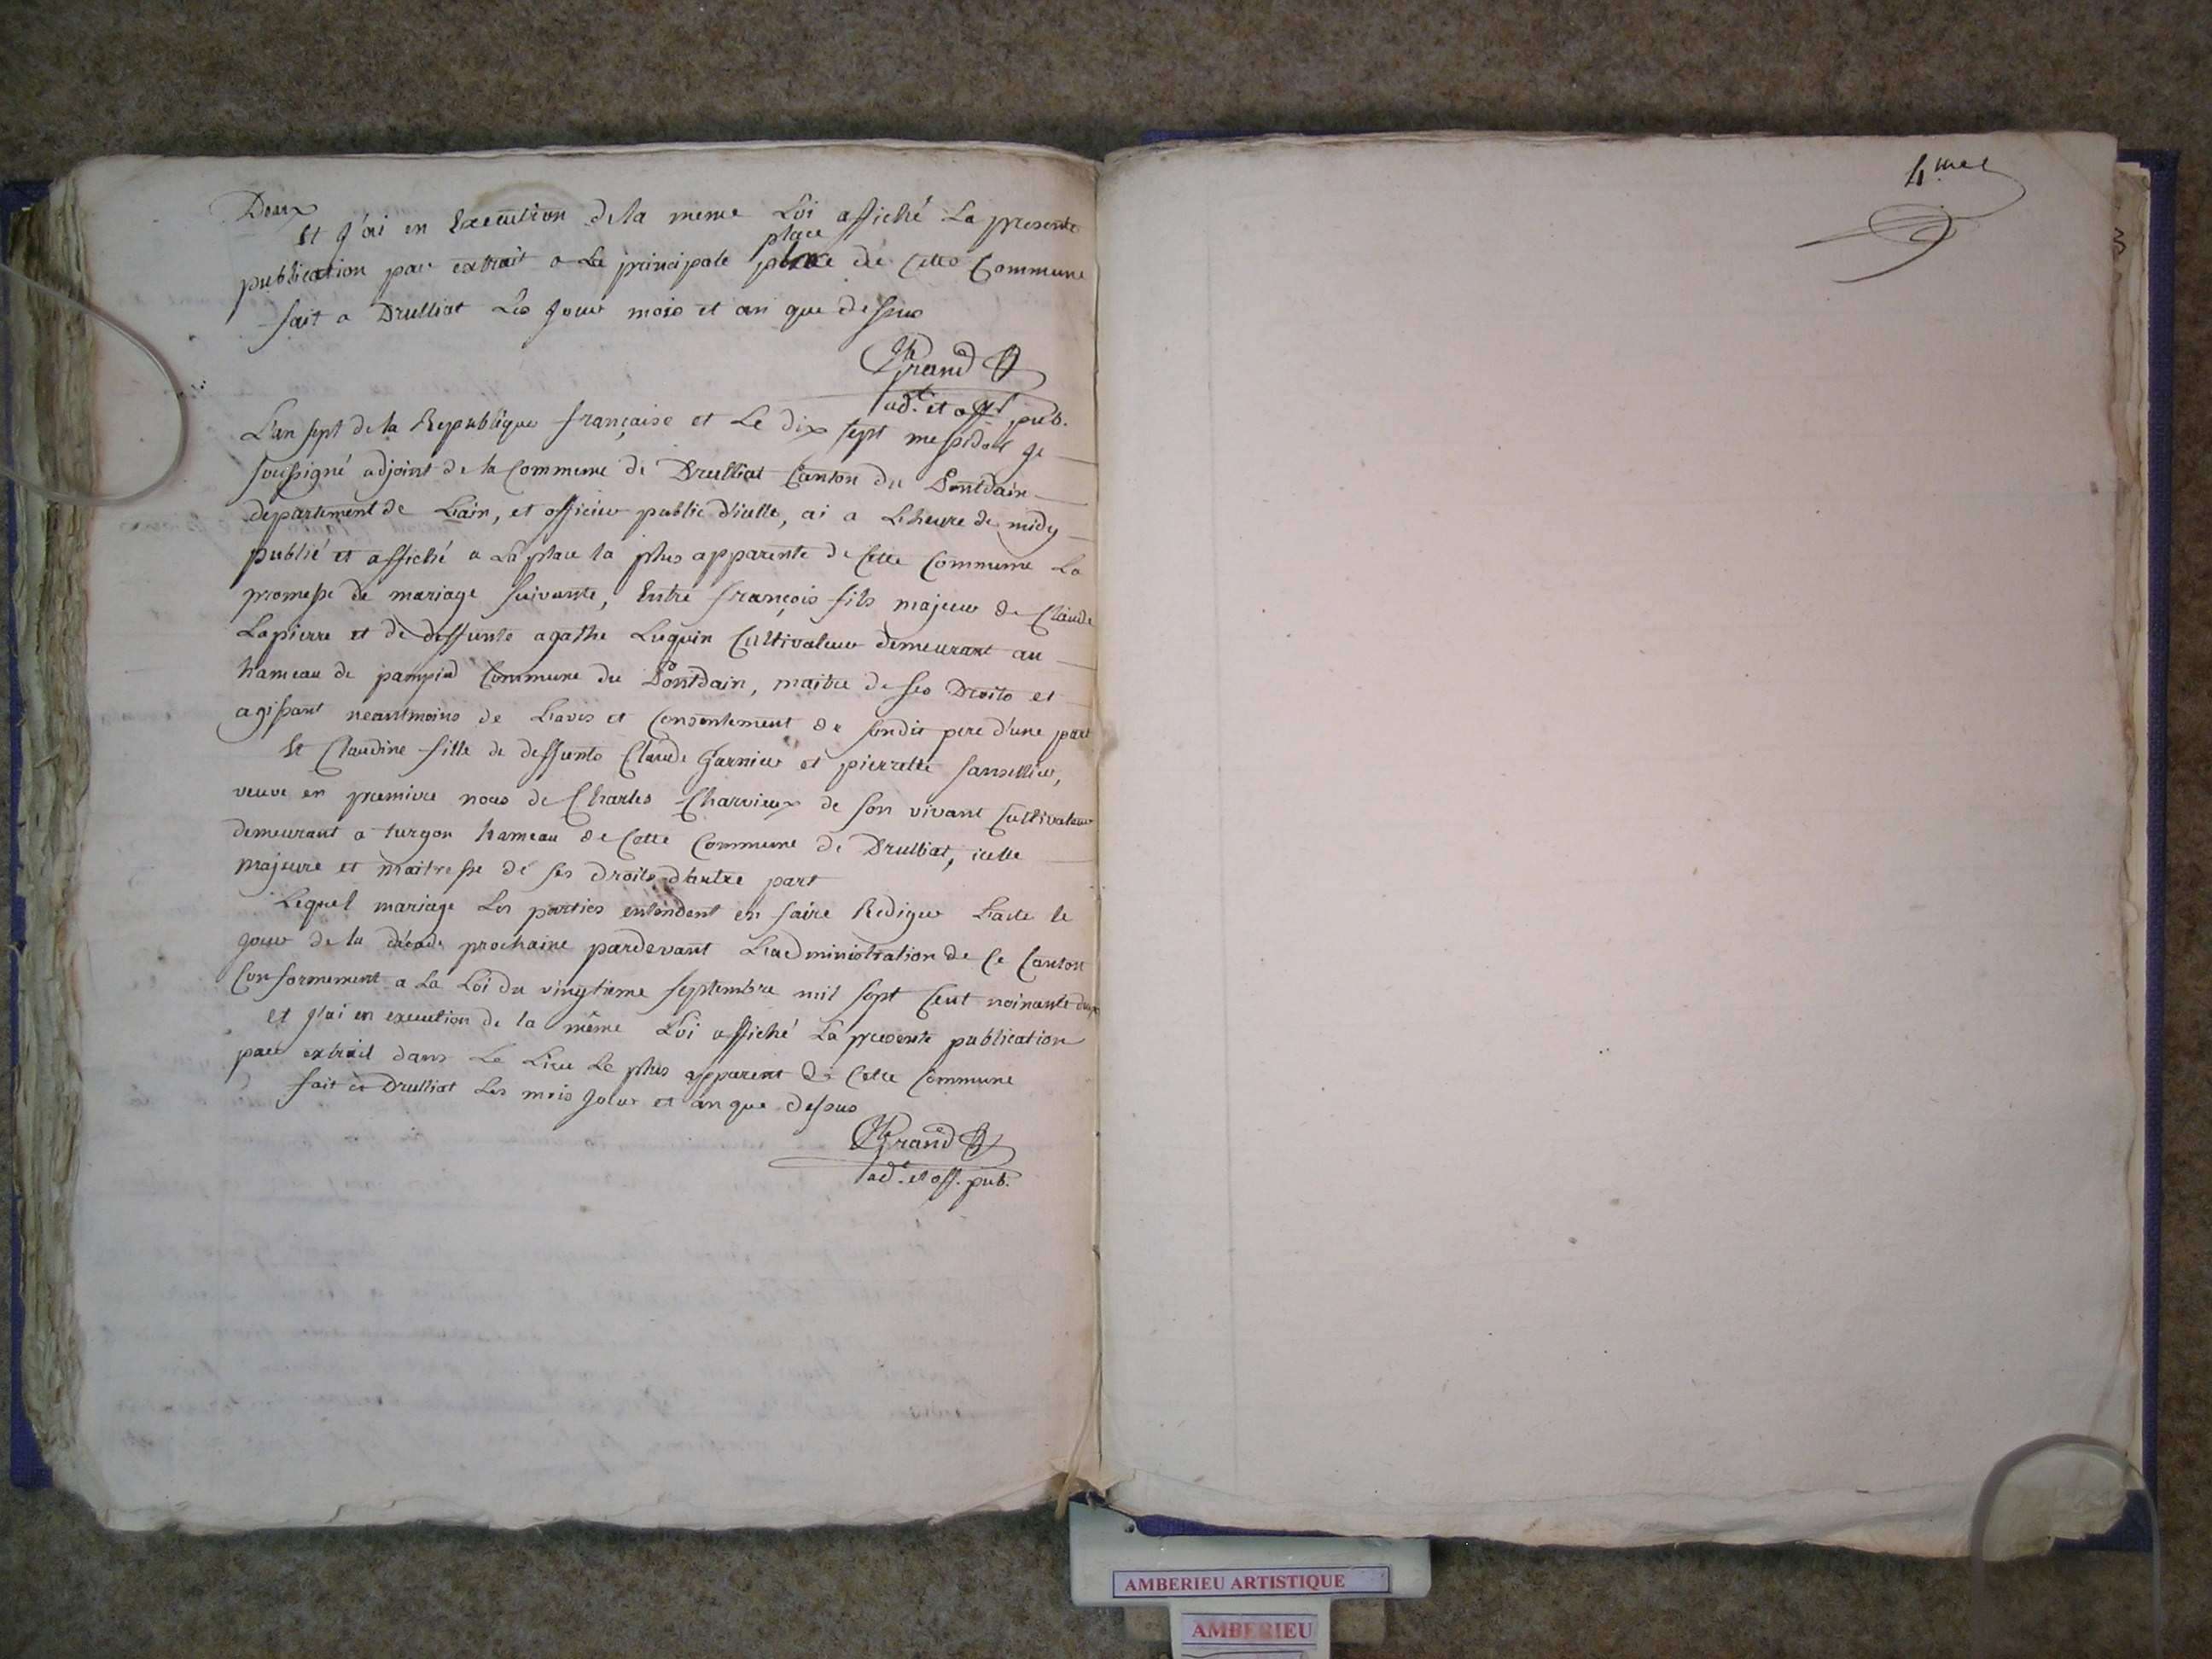 Deux
Et j'ai en Execution de la meme Loi affiché La presente
place
publication par extrait a la principale place de cette Commune
fait a Drulliat Les jour mois et an que dessus
Grand
adt. et off. pub.
L'an sept de la Republique française et Le dix sept messidor je
soussigné adjoint de la Commune de Drulliat Canton du Pontdain
departement de Lain, et officier public d'icelle, ai a Lheure de midy
publié et affiché a La place la plus apparente de cette Commune La
promesse de mariage suivante, Entre françois fils majeur de Claude
Lapierre et de deffunte agathe Luquin Cultivateur demeurant au
hameau de Commune du Pontdain, maitre de ses Droits et
agissant neantmoins de Lavis et Consentement de sondit pere d'une part
Et Claudine fille de deffunts Claude Garnier et pierrette
veuve en premiere noces de Charles Charvieux de son vivant Cultivateur
demeurant a turgon hameau de Cette Commune de Drulliat, icelle
majeure et maitresse de ses droits d'autre part
Lequel mariage Les parties entendent en faire Rediger Lacte le
jour de la decade prochaine pardevant Ladministration de Ce Canton
Conformement a La Loi du vingtieme septembre mil sept Cent noinante deux
et j'ai en execution de la même Loi affiché La presente publication
par extrait dans Le Lieu Le plus apparent de Cette Commune
fait a Drulliat Les mois jour et an que dessus
Grand
adt. et off. pub.
4me
3
AMBERIEU ARTISTIQUE
AMBERIEU